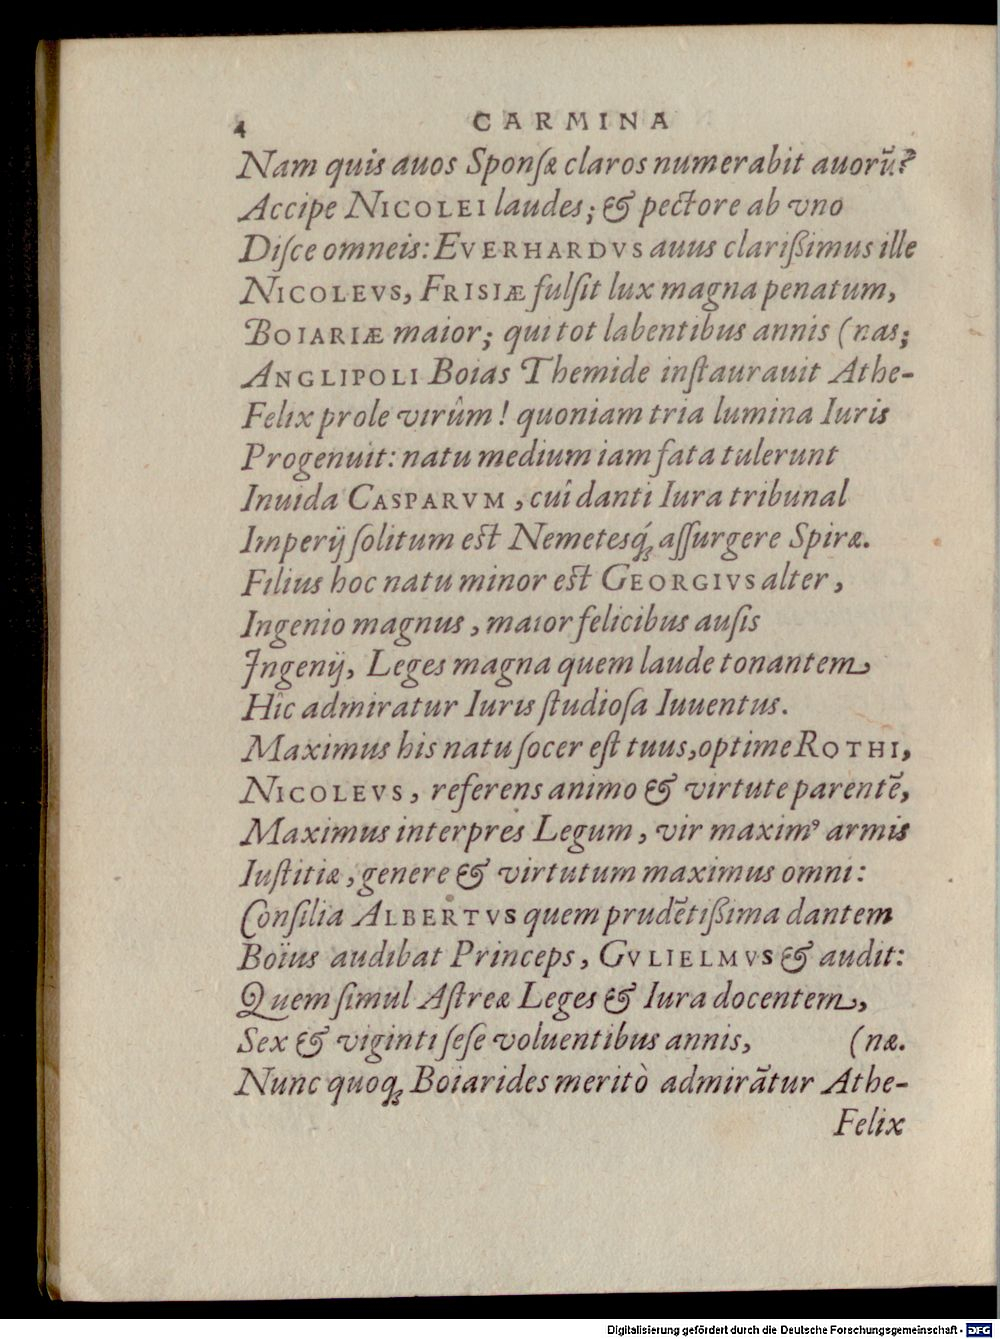 4 CARMINA
Nam quis auos Sponſæ claros numerabit auorū?
Accipe NICOLEI laudes; & pectore ab vno
Diſce omneis: EVERHARDVS auus clarißimus ille
NICOLEVS, FRISIÆ fulſit lux magna penatum,
BOIARIÆ maior; qui tot labentibus annis (nas;
ANGLIPOLI Boias Themide inſtaurauit Athe-
Felix prole virûm! quoniam tria lumina Iuris
Progenuit: natu medium iam fata tulerunt
Inuida CASPARVM, cuî danti Iura tribunal
Imperij ſolitum est Nemetesq́; aſſurgere Spiræ.
Filius hoc natu minor est GEORGIVS alter,
Ingenio magnus, maior felicibus auſis
Ingenij, Leges magna quem laude tonantem
Hîc admiratur Iuris ſtudioſa Iuuentus.
Maximus his natu ſocer eſt tuus, optime ROTHI,
NICOLEVS, referens animo & virtute parentē,
Maximus interpres Legum, vir maximꝰ armis
Iuſtitiæ, genere & virtutum maximus omni:
Conſilia ALBERTVS quem prudētißima dantem
Boïus audibat Princeps, GVLIELMVS & audit:
Quem ſimul Aſtreæ Leges & Iura docentem,
Sex & viginti ſeſe voluentibus annis, (næ.
Nunc quoq; Boiarides meritò admirātur Athe-
Felix
Digitalisierung gefördert durch die Deutsche Forschungsgemeinschaft - DFG